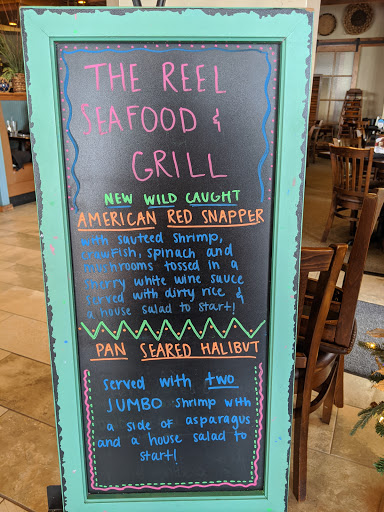 THE REEL
SEAFOOD &
GRILL
NEW WILD CAUGHT
AMERICAN RED SNAPPER
with sauteed shrimp,
crawfish, spinach and
mushrooms tossed in a
sherry white wine sauce
served with dirty rice, &
a house salad to start!
PAN SEARED HALIBUT
served with two
JUMBO shrimp with
a side of asparagus
and a house salad to
start!